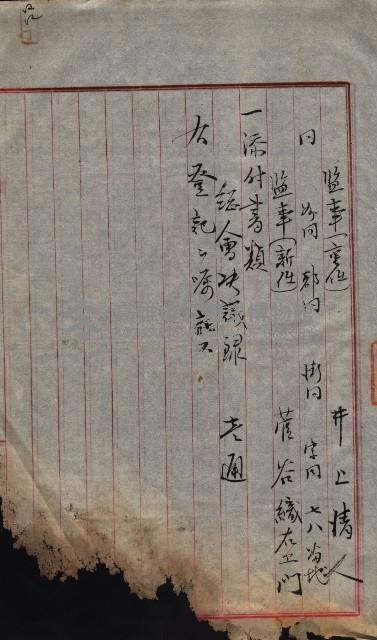 監事(重任) 井上情人
同 州同郡同街同字同七八番地
監事(新任) 菅谷織右エ門
一添付書類
総人會決議録 壱通
右登記ヲ嘱託ス